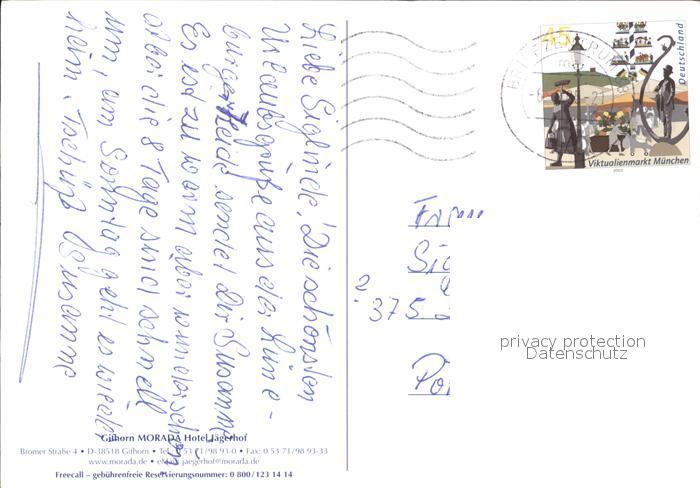 Liebe Siglinde! Die schönsten
Urlaubsgrüße aus der Lüne-
burger Heide sendet Dir Susanne
Es ist zu warm aber wunderschön
aber die 8 Tage sind schnell
um, am Sonntag geht es wieder
heim. Tschüß Susanne
Gifhorn MORADA Hotel Jägerhof
Bromer Straße 4 • D-38518 Gifhorn • Tel. 0 53 71/98 93-0 • Fax: 0 53 71/98 93-33
www.morada.de • eMail: jaegerhof@morada.de
Freecall – gebührenfreie Reservierungsnummer: 0 800/123 14 14
45
Deutschland
Viktualienmarkt München
2003
BRIEFZENTRUM
Frau
Sig
375
Po
privacy protection
Datenschutz